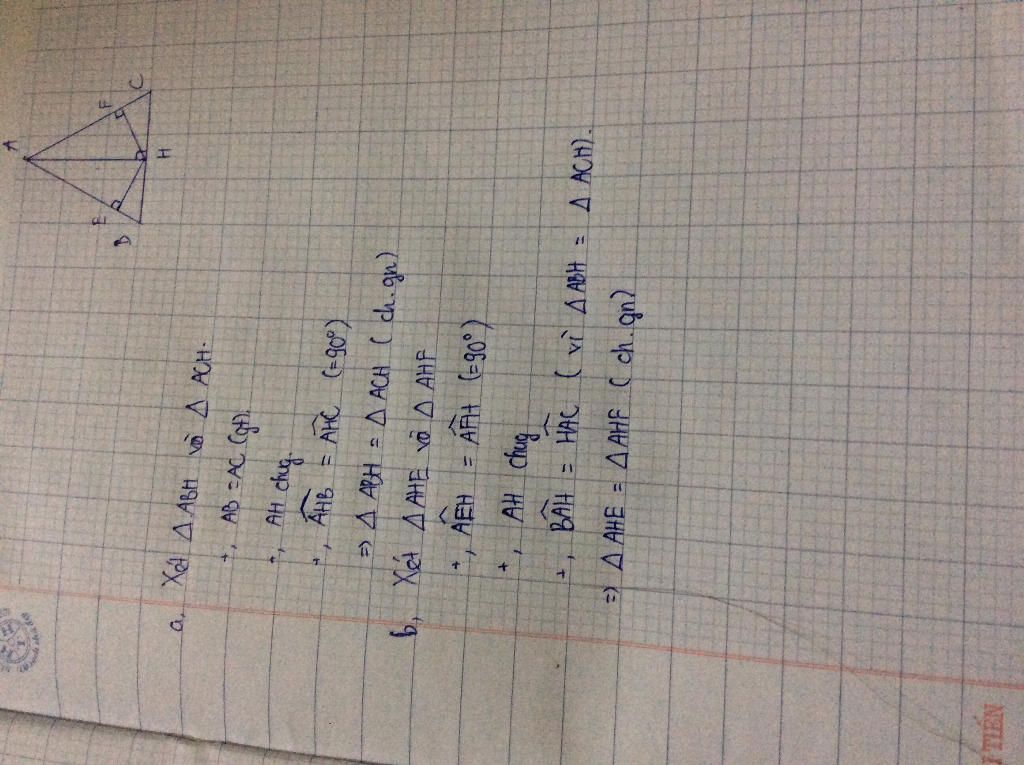 A
E
F
B
C
H
a, Xét Δ ABH và Δ ACH.
+, AB = AC (gt)
+, AH chug.
+, AHB = AHC (=90°)
=> Δ ABH = Δ ACH ( ch. gn)
b, Xét Δ AHE và Δ AHF
+, AEH = AFH (=90°)
+, AH chug
+, BAH = HAC ( vì Δ ABH = Δ ACH).
=> Δ AHE = Δ AHF ( ch. gn)
TIẾN